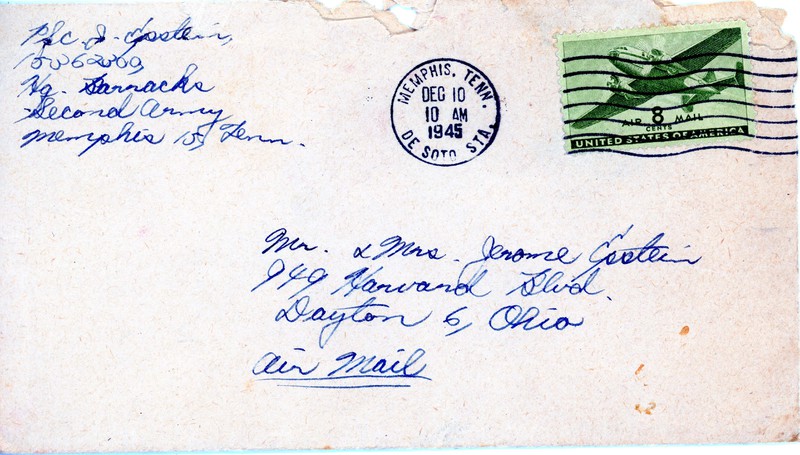 Pfc. J. Epstein,
Hq. Barracks
Second Army
Memphis 15, Tenn.
MEMPHIS, TENN.
DEC 10
10 AM
1945
DE SOTO STA.
8
AIR MAIL
CENTS
UNITED STATES OF AMERICA
Mr. & Mrs. Jerome Epstein
949 Harvard Blvd.
Dayton 6, Ohio
Air Mail